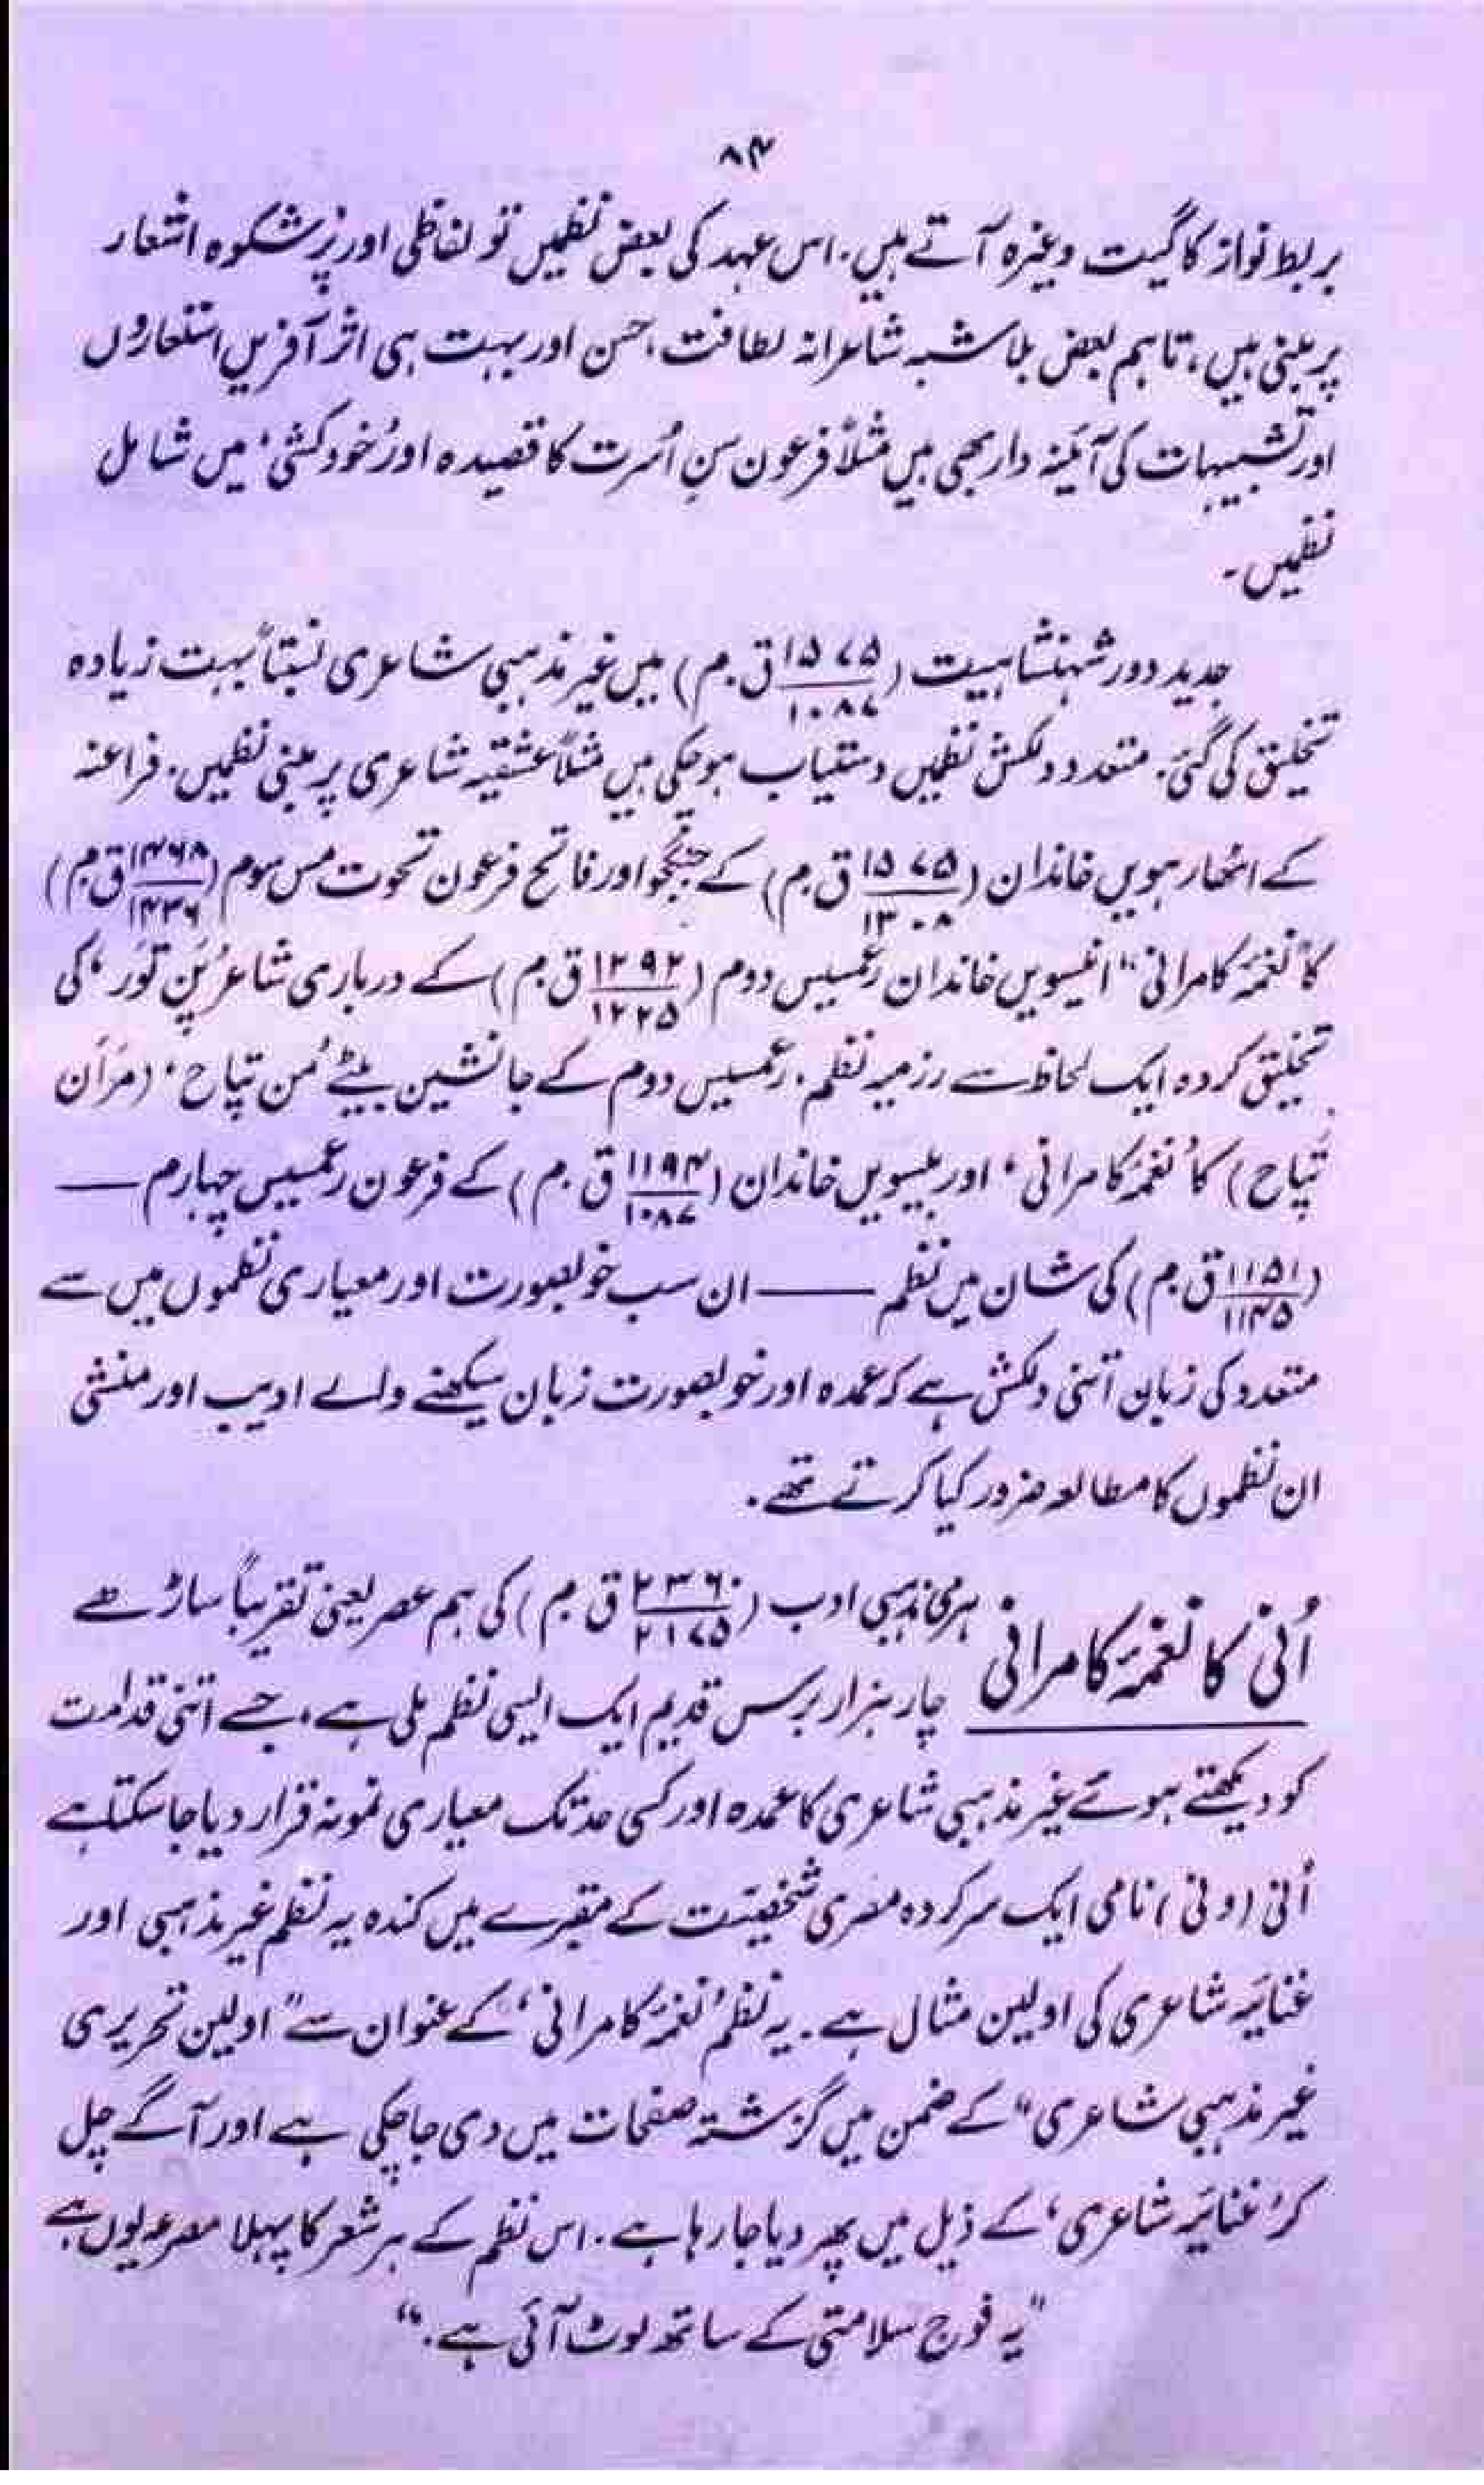 ۸۴
بربط نواز کا گیت وغیرہ آتے ہیں۔ اس عہد کی بعض نظمیں تو لفاظی اور پُرشکوہ اشعار
پر مبنی ہیں، تاہم بعض بلاشبہ شاعرانہ لطافت، حسن اور بہت ہی اثر آفریں استعاروں
اور تشبیہات کی آئینہ دار بھی ہیں مثلاً فرعون سن اُسرت کا قصیدہ اور 'خودکشی' میں شامل
نظمیں۔
جدید دور شہنشاہیت (۱۵۷۵/۱۰۸۷ ق۔م) میں غیر مذہبی شاعری نسبتاً بہت زیادہ
تخلیق کی گئی۔ متعدد دلکش نظمیں دستیاب ہو چکی ہیں مثلاً عشقیہ شاعری پر مبنی نظمیں۔ فراعنہ
کے اٹھارہویں خاندان (۱۵۷۵/۱۳۰۸ ق۔م) کے جنگجو اور فاتح فرعون تحوت مس سوم (۱۴۶۸/۱۴۳۶ ق۔م)
کا "نغمۂ کامرانی" انیسویں خاندان رعمسیس دوم (۱۲۹۲/۱۲۲۵ ق۔م) کے درباری شاعر 'پَن تَور' کی
تخلیق کردہ ایک لحاظ سے رزمیہ نظم۔ رعمسیس دوم کے جانشین بیٹے 'من تپاح' (مرَاَن
تَپاح) کا 'نغمۂ کامرانی' اور بیسویں خاندان (۱۱۹۴/۱۰۸۷ ق۔م) کے فرعون رعمسیس چہارم ——
(۱۱۵۱/۱۱۴۵ ق۔م) کی شان میں نظم —— ان سب خوبصورت اور معیاری نظموں میں سے
متعدد کی زبان اتنی دلکش ہے کہ عمدہ اور خوبصورت زبان سیکھنے والے ادیب اور منشی
ان نظموں کا مطالعہ ضرور کیا کرتے تھے۔
اُنی کا نغمۂ کامرانی ہرمی مذہبی ادب (۲۳۶۰/۲۱۷۵ ق۔م) کی ہم عصر یعنی تقریباً ساڑھے
چار ہزار برس قدیم ایک ایسی نظم ملی ہے، جسے اتنی قدامت
کو دیکھتے ہوئے غیر مذہبی شاعری کا عمدہ اور کسی حد تک معیاری نمونہ قرار دیا جا سکتا ہے
اُنی (ونی) نامی ایک سرکردہ مصری شخصیّت کے مقبرے میں کندہ یہ نظم غیر مذہبی اور
غنائیہ شاعری کی اولین مثال ہے۔ یہ نظم 'نغمۂ کامرانی' کے عنوان سے "اولین تحریری
غیر مذہبی شاعری" کے ضمن میں گزشتہ صفحات میں دی جا چکی ہے اور آگے چل
کر 'غنائیہ شاعری' کے ذیل میں پھر دیا جا رہا ہے۔ اس نظم کے ہر شعر کا پہلا مصرعہ یوں ہے
"یہ فوج سلامتی کے ساتھ لوٹ آئی ہے۔"